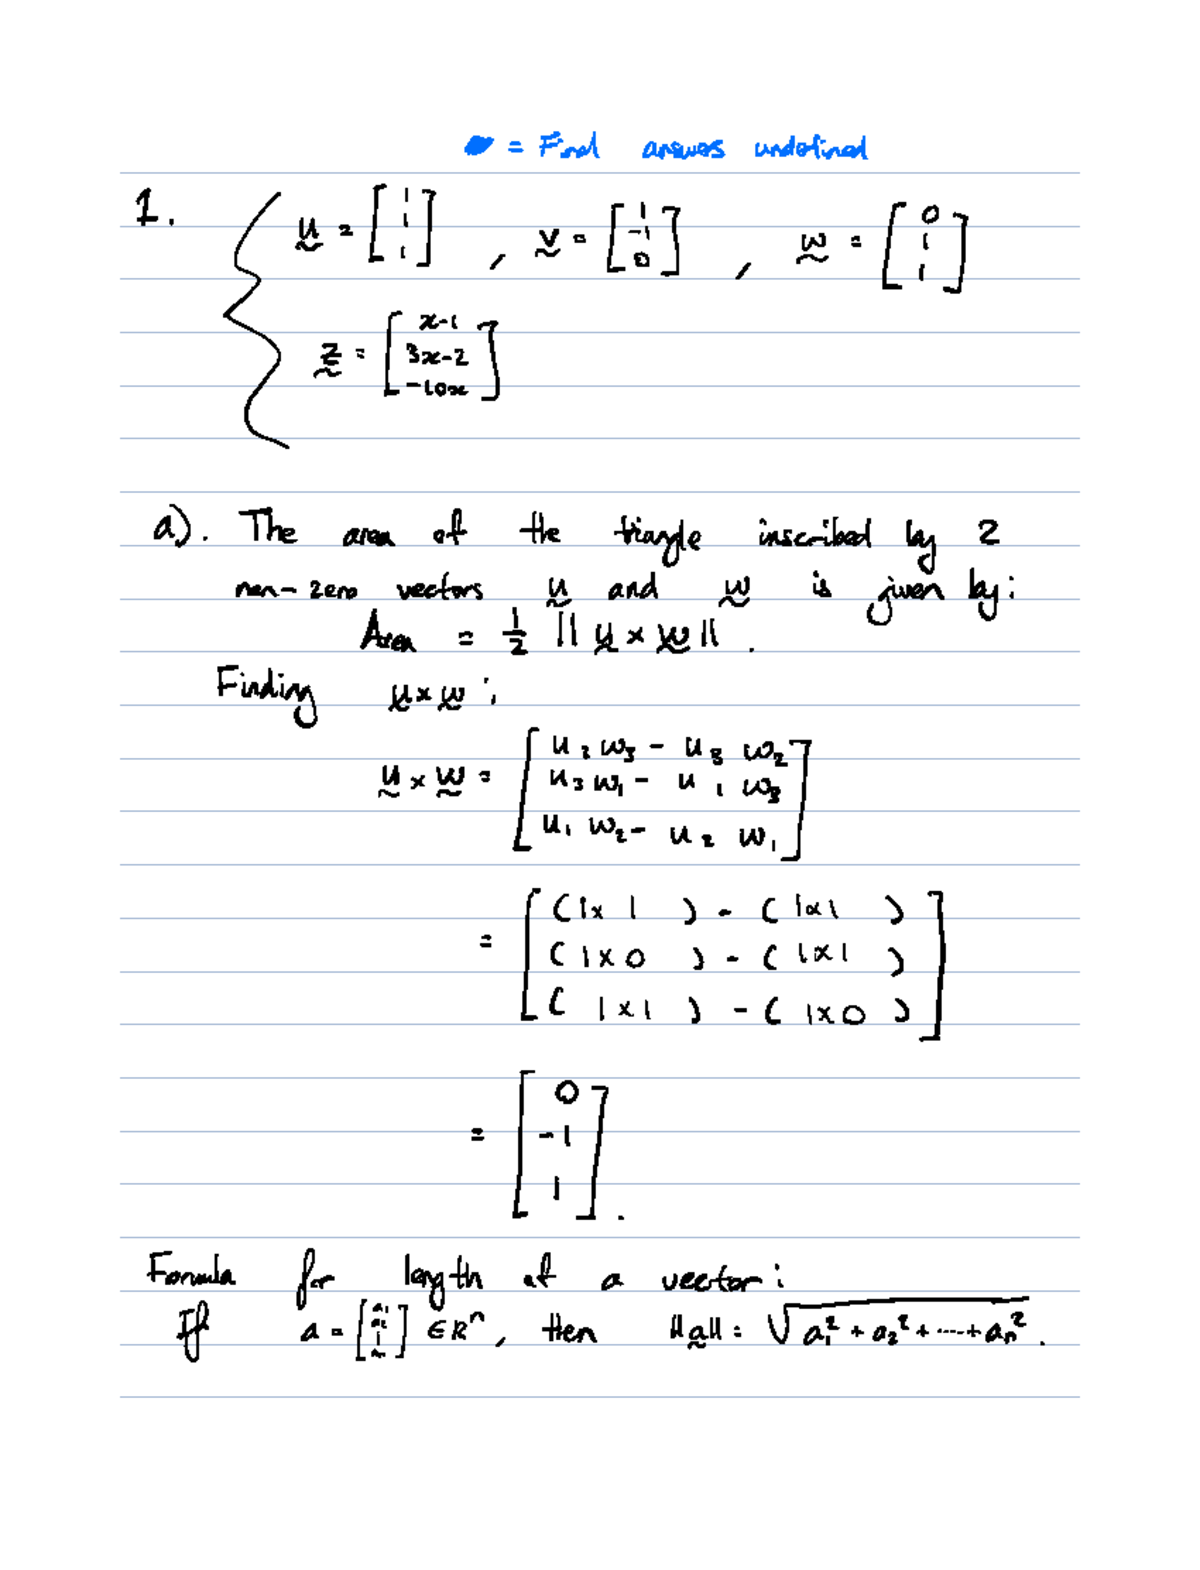 = Final answers undefined
1. u = [1 1 1], v = [1 -1 0], w = [0 1 1]
z = [x-1 3x-2 -10x]
a). The area of the triangle inscribed by 2
non-zero vectors u and w is given by:
Area = 1/2 ||u × w||.
Finding u×w:
u × w = [u₂w₃ - u₃w₂
u₃w₁ - u₁w₃
u₁w₂ - u₂w₁]
= [(1×1) - (1×1)
(1×0) - (1×1)
(1×1) - (1×0)]
= [0
-1
1].
Formula for length of a vector:
If a = [a₁ a₂ ⋮ aₙ] ∈ Rⁿ, then ||a|| = √(a₁² + a₂² + ----+ aₙ²).